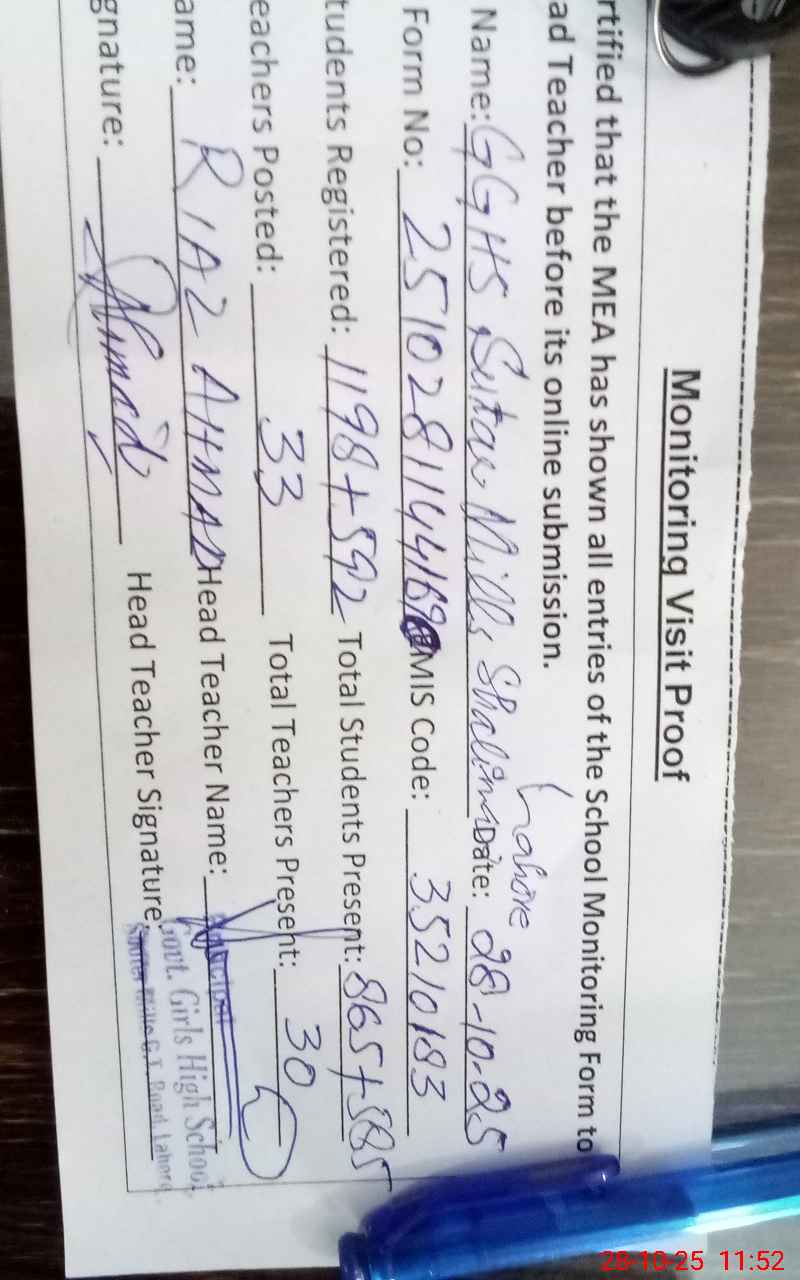 Monitoring Visit Proof
rtified that the MEA has shown all entries of the School Monitoring Form to
ad Teacher before its online submission.
Name: GGHS Sutar Mills Shalimar Lahore Date: 28-10-25
Form No: 2510281144169 MIS Code: 35210183
tudents Registered: 1198+592 Total Students Present: 865+585
eachers Posted: 33 Total Teachers Present: 30
ame: RIAZ AHMAD Head Teacher Name:
Principal
Govt. Girls High School
Mills G.T. Road, Lahore.
gnature: Ahmad Head Teacher Signature:
28-10-25 11:52